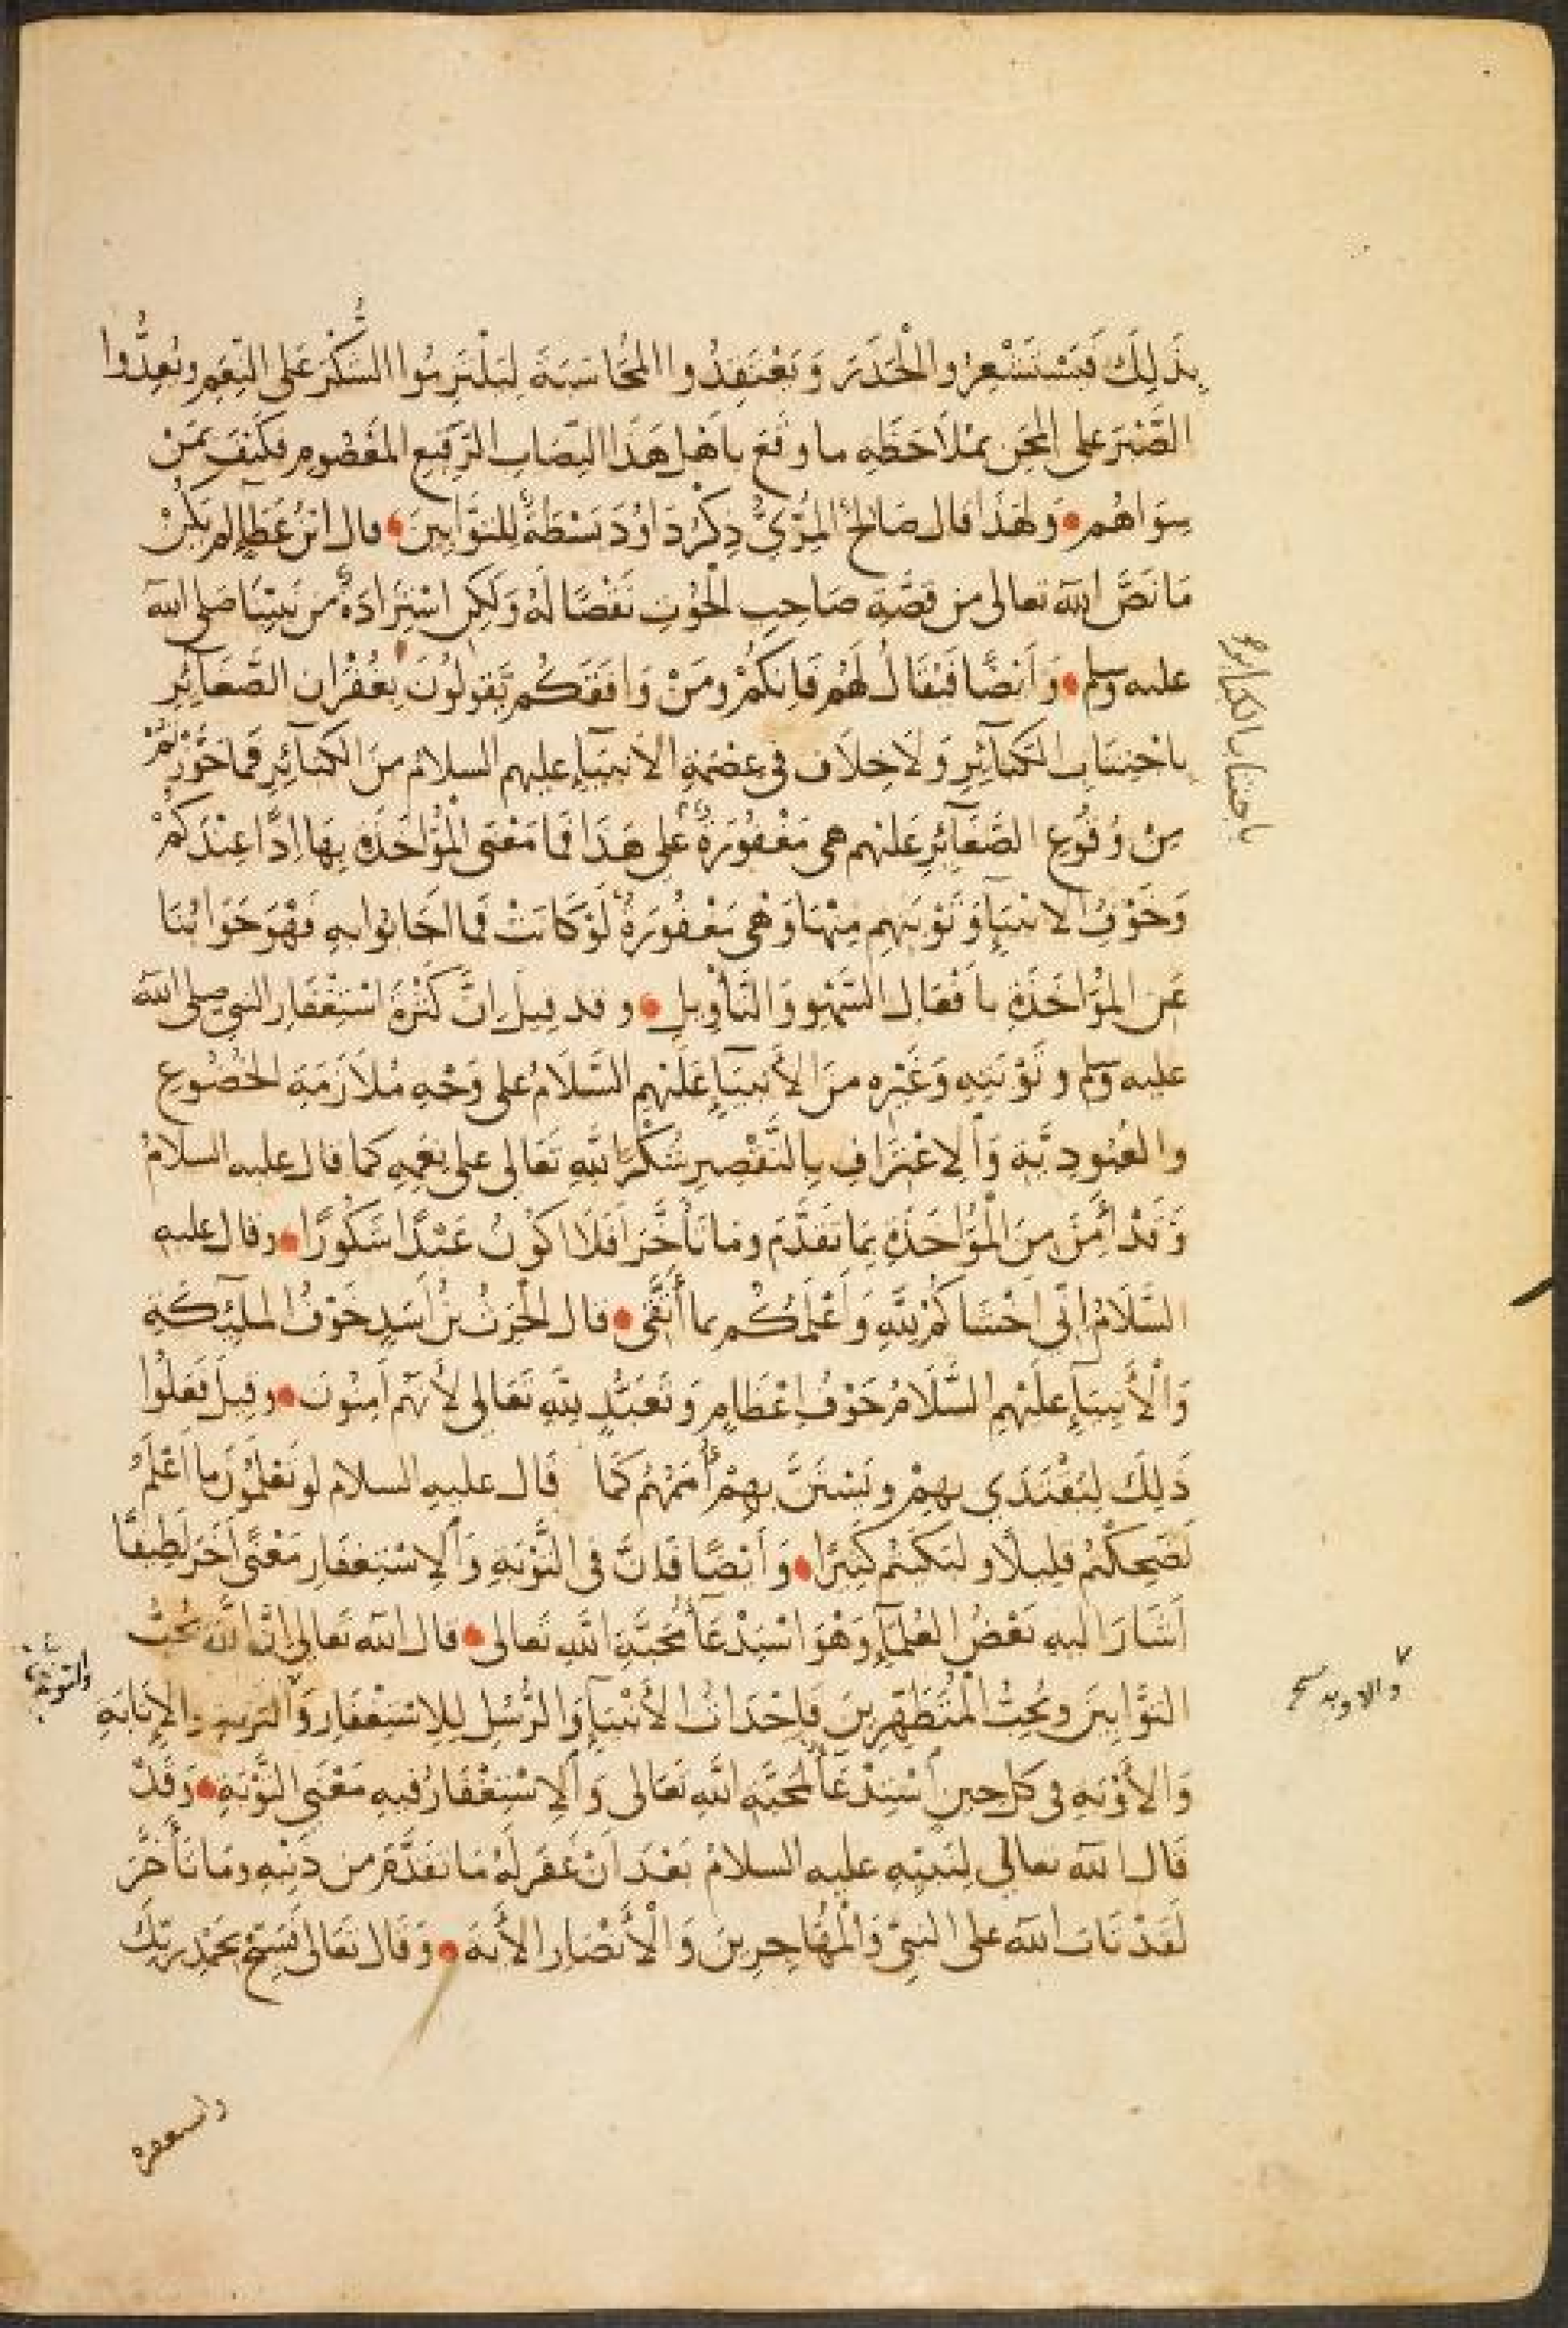 بِذَلِكَ فَيَسْتَشْعِرُوا الْحَذَرَ وَيَعْتَقِدُوا الْمُحَاسَبَةَ لِيَلْتَزِمُوا الشُّكْرَ عَلَى النِّعَمِ وَيُعِدُّوا
الصَّبْرَ عَلَى الْمِحَنِ بِمُلَاحَظَةِ مَا وَقَعَ بِأَهْلِ هَذَا النِّصَابِ الرَّفِيعِ الْمَعْصُومِ فَكَيْفَ بِمَنْ
سِوَاهُمْ وَلِهَذَا قَالَ صَالِحٌ الْمُرِّيُّ ذِكْرُ دَاوُدَ بَسْطَةٌ لِلتَّوَّابِينَ قَالَ ابْنُ عَطَاءٍ لَمْ يَكُنْ
مَا نَصَّ اللهُ تَعَالَى مِنْ قِصَّةِ صَاحِبِ الْحُوتِ نَقْصًا لَهُ وَلَكِنِ اسْتِزَادَةً مِنْ نَبِيِّنَا صلى الله
عليه وسلم وَأَيْضًا فَيُقَالُ لَهُمْ فَإِنَّكُمْ وَمَنْ وَافَقَكُمْ يَقُولُونَ بِغُفْرَانِ الصَّغَائِرِ
بِاجْتِنَابِ الْكَبَائِرِ وَلَا خِلَافَ فِي عِصْمَةِ الْأَنْبِيَاءِ عليهم السلام مِنَ الْكَبَائِرِ فَمَا جَوَّزْتُمْ
مِنْ وُقُوعِ الصَّغَائِرِ عَلَيْهِمْ هِيَ مَغْفُورَةٌ عَلَى هَذَا فَمَا مَعْنَى الْمُؤَاخَذَةِ بِهَا إِذًا عِنْدَكُمْ
وَخَوْفِ الْأَنْبِيَاءِ وَتَوْبَتِهِمْ مِنْهَا وَهِيَ مَغْفُورَةٌ لَوْ كَانَتْ فَمَا أَجَابُوا بِهِ فَهُوَ جَوَابُنَا
عَنِ الْمُؤَاخَذَةِ بِأَفْعَالِ السَّهْوِ وَالتَّأْوِيلِ وَقَدْ قِيلَ إِنَّ كَثْرَةَ اسْتِغْفَارِ النبي صلى الله
عليه وسلم وَتَوْبَتِهِ وَغَيْرِهِ مِنَ الْأَنْبِيَاءِ عَلَيْهِمُ السَّلَامُ عَلَى وَجْهِ مُلَازَمَةِ الْخُضُوعِ
وَالْعُبُودِيَّةِ وَالِاعْتِرَافِ بِالتَّقْصِيرِ شُكْرًا لِلهِ تَعَالَى عَلَى نِعَمِهِ كَمَا قَالَ عليه السلام
وَقَدْ أُمِّنَ مِنَ الْمُؤَاخَذَةِ بِمَا تَقَدَّمَ وَمَا تَأَخَّرَ أَفَلَا أَكُونُ عَبْدًا شَكُورًا وَقَالَ عليه
السَّلَامُ إِنِّي أَخْشَاكُمْ لِلهِ وَأَعْلَمُكُمْ بِمَا أَتَّقِي قَالَ الْحَرِثُ بْنُ أَسَدٍ خَوْفُ الْمَلَئِكَةِ
وَالْأَنْبِيَاءِ عَلَيْهِمُ السَّلَامُ خَوْفُ إِعْظَامٍ وَتَعَبُّدٍ لِلهِ تَعَالَى لِأَنَّهُمْ آمِنُونَ وَقِيلَ فَعَلُوا
ذَلِكَ لِيُقْتَدَى بِهِمْ وَتَسْتَنَّ بِهِمْ أُمَمُهُمْ كَمَا قَالَ عليه السلام لَوْ تَعْلَمُونَ مَا أَعْلَمُ
لَضَحِكْتُمْ قَلِيلًا وَلَبَكَيْتُمْ كَثِيرًا وَأَيْضًا فَإِنَّ فِي التَّوْبَةِ وَالِاسْتِغْفَارِ مَعْنًى آخَرَ لَطِيفًا
أَشَارَ إِلَيْهِ بَعْضُ الْعُلَمَاءِ وَهُوَ اسْتِدْعَاءُ مَحَبَّةِ اللهِ تَعَالَى قَالَ الله تَعَالَى إِنَّ اللهَ يُحِبُّ
التَّوَّابِينَ وَيُحِبُّ الْمُتَطَهِّرِينَ فَإِحْدَاثُ الْأَنْبِيَاءِ وَالرُّسُلِ لِلِاسْتِغْفَارِ وَالتَّوْبَةِ وَالْإِنَابَةِ
وَالْأَوْبَةِ فِي كُلِّ حِينٍ اسْتِدْعَاءٌ لِمَحَبَّةِ اللهِ تَعَالَى وَالِاسْتِغْفَارُ فِيهِ مَعْنَى التَّوْبَةِ وَقَدْ
قَالَ الله تعالى لِنَبِيِّهِ عليه السلام بَعْدَ أَنْ غَفَرَ لَهُ مَا تَقَدَّمَ مِنْ ذَنْبِهِ وَمَا تَأَخَّرَ
لَقَدْ تَابَ الله عَلَى النَّبِيِّ وَالْمُهَاجِرِينَ وَالْأَنْصَارِ الْآيَةَ وَقَالَ تَعَالَى فَسَبِّحْ بِحَمْدِ رَبِّكَ
باجتناب الكباير
والتوبة
والاوبة
واستغفره